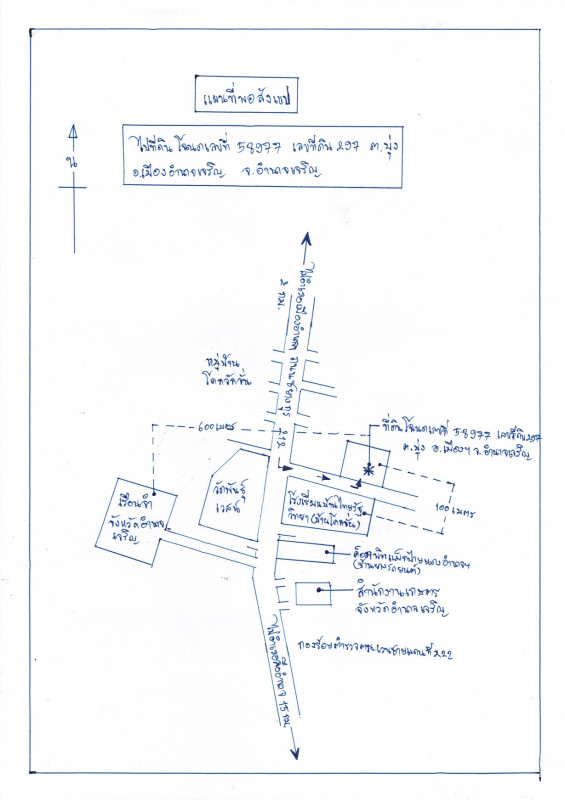 แผนที่พอสังเขป
ไปที่ดิน โฉนดเลขที่ 58977 เลขที่ดิน 297 ต.บุ่ง
อ.เมืองอำนาจเจริญ จ.อำนาจเจริญ
น
ไปอำเภอเมืองอำนาจ
2 กม.
ถนนชยางกูร
หมู่บ้าน
600 เมตร
212
ที่ดินโฉนดเลขที่ 58977 เลขที่ดิน 297
ต.บุ่ง อ.เมืองฯ จ.อำนาจเจริญ
100 เมตร
เรือนจำ
จังหวัดอำนาจ
เจริญ
โรงเรียนบ้านไทยรัฐ
วิทยา
(จำหน่ายรถยนต์)
สำนักงานเกษตร
จังหวัดอำนาจเจริญ
กองร้อยตำรวจตระเวนชายแดนที่ 222